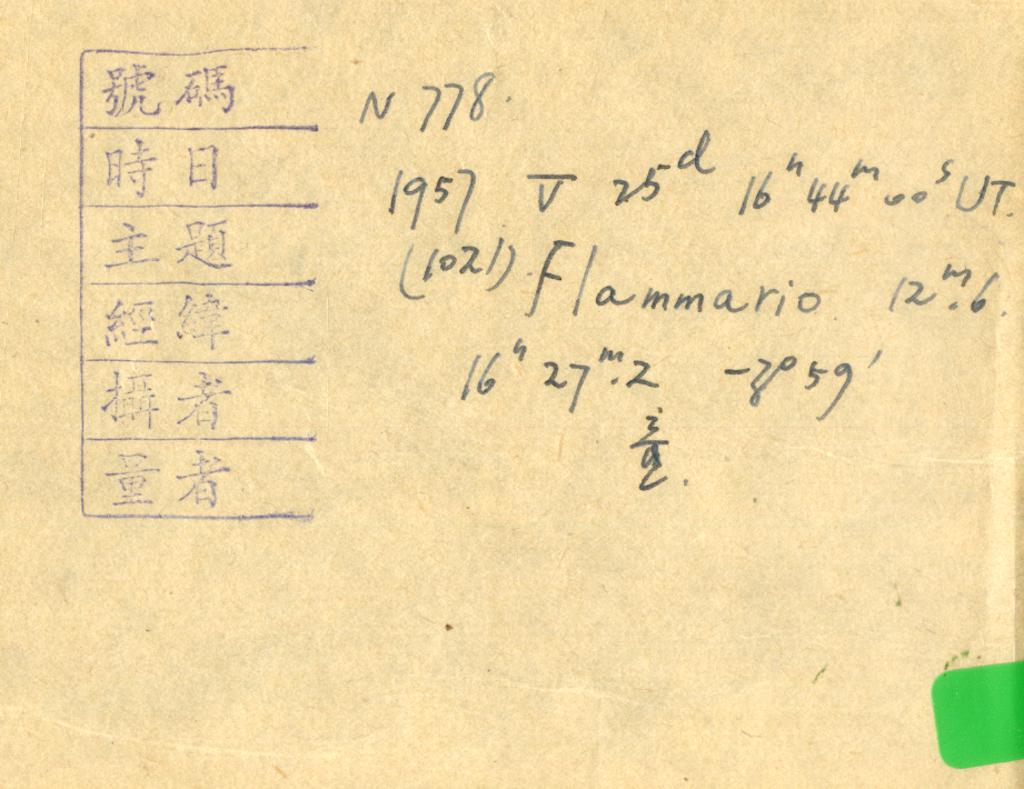 號碼 N 778.
時日 1957 V 25ᵈ 16ʰ 44ᵐ 00ˢ UT.
主題 (1021) Flammario 12ᵐ.6.
經緯 16ʰ 27ᵐ.2 -3°59′
攝者
量者